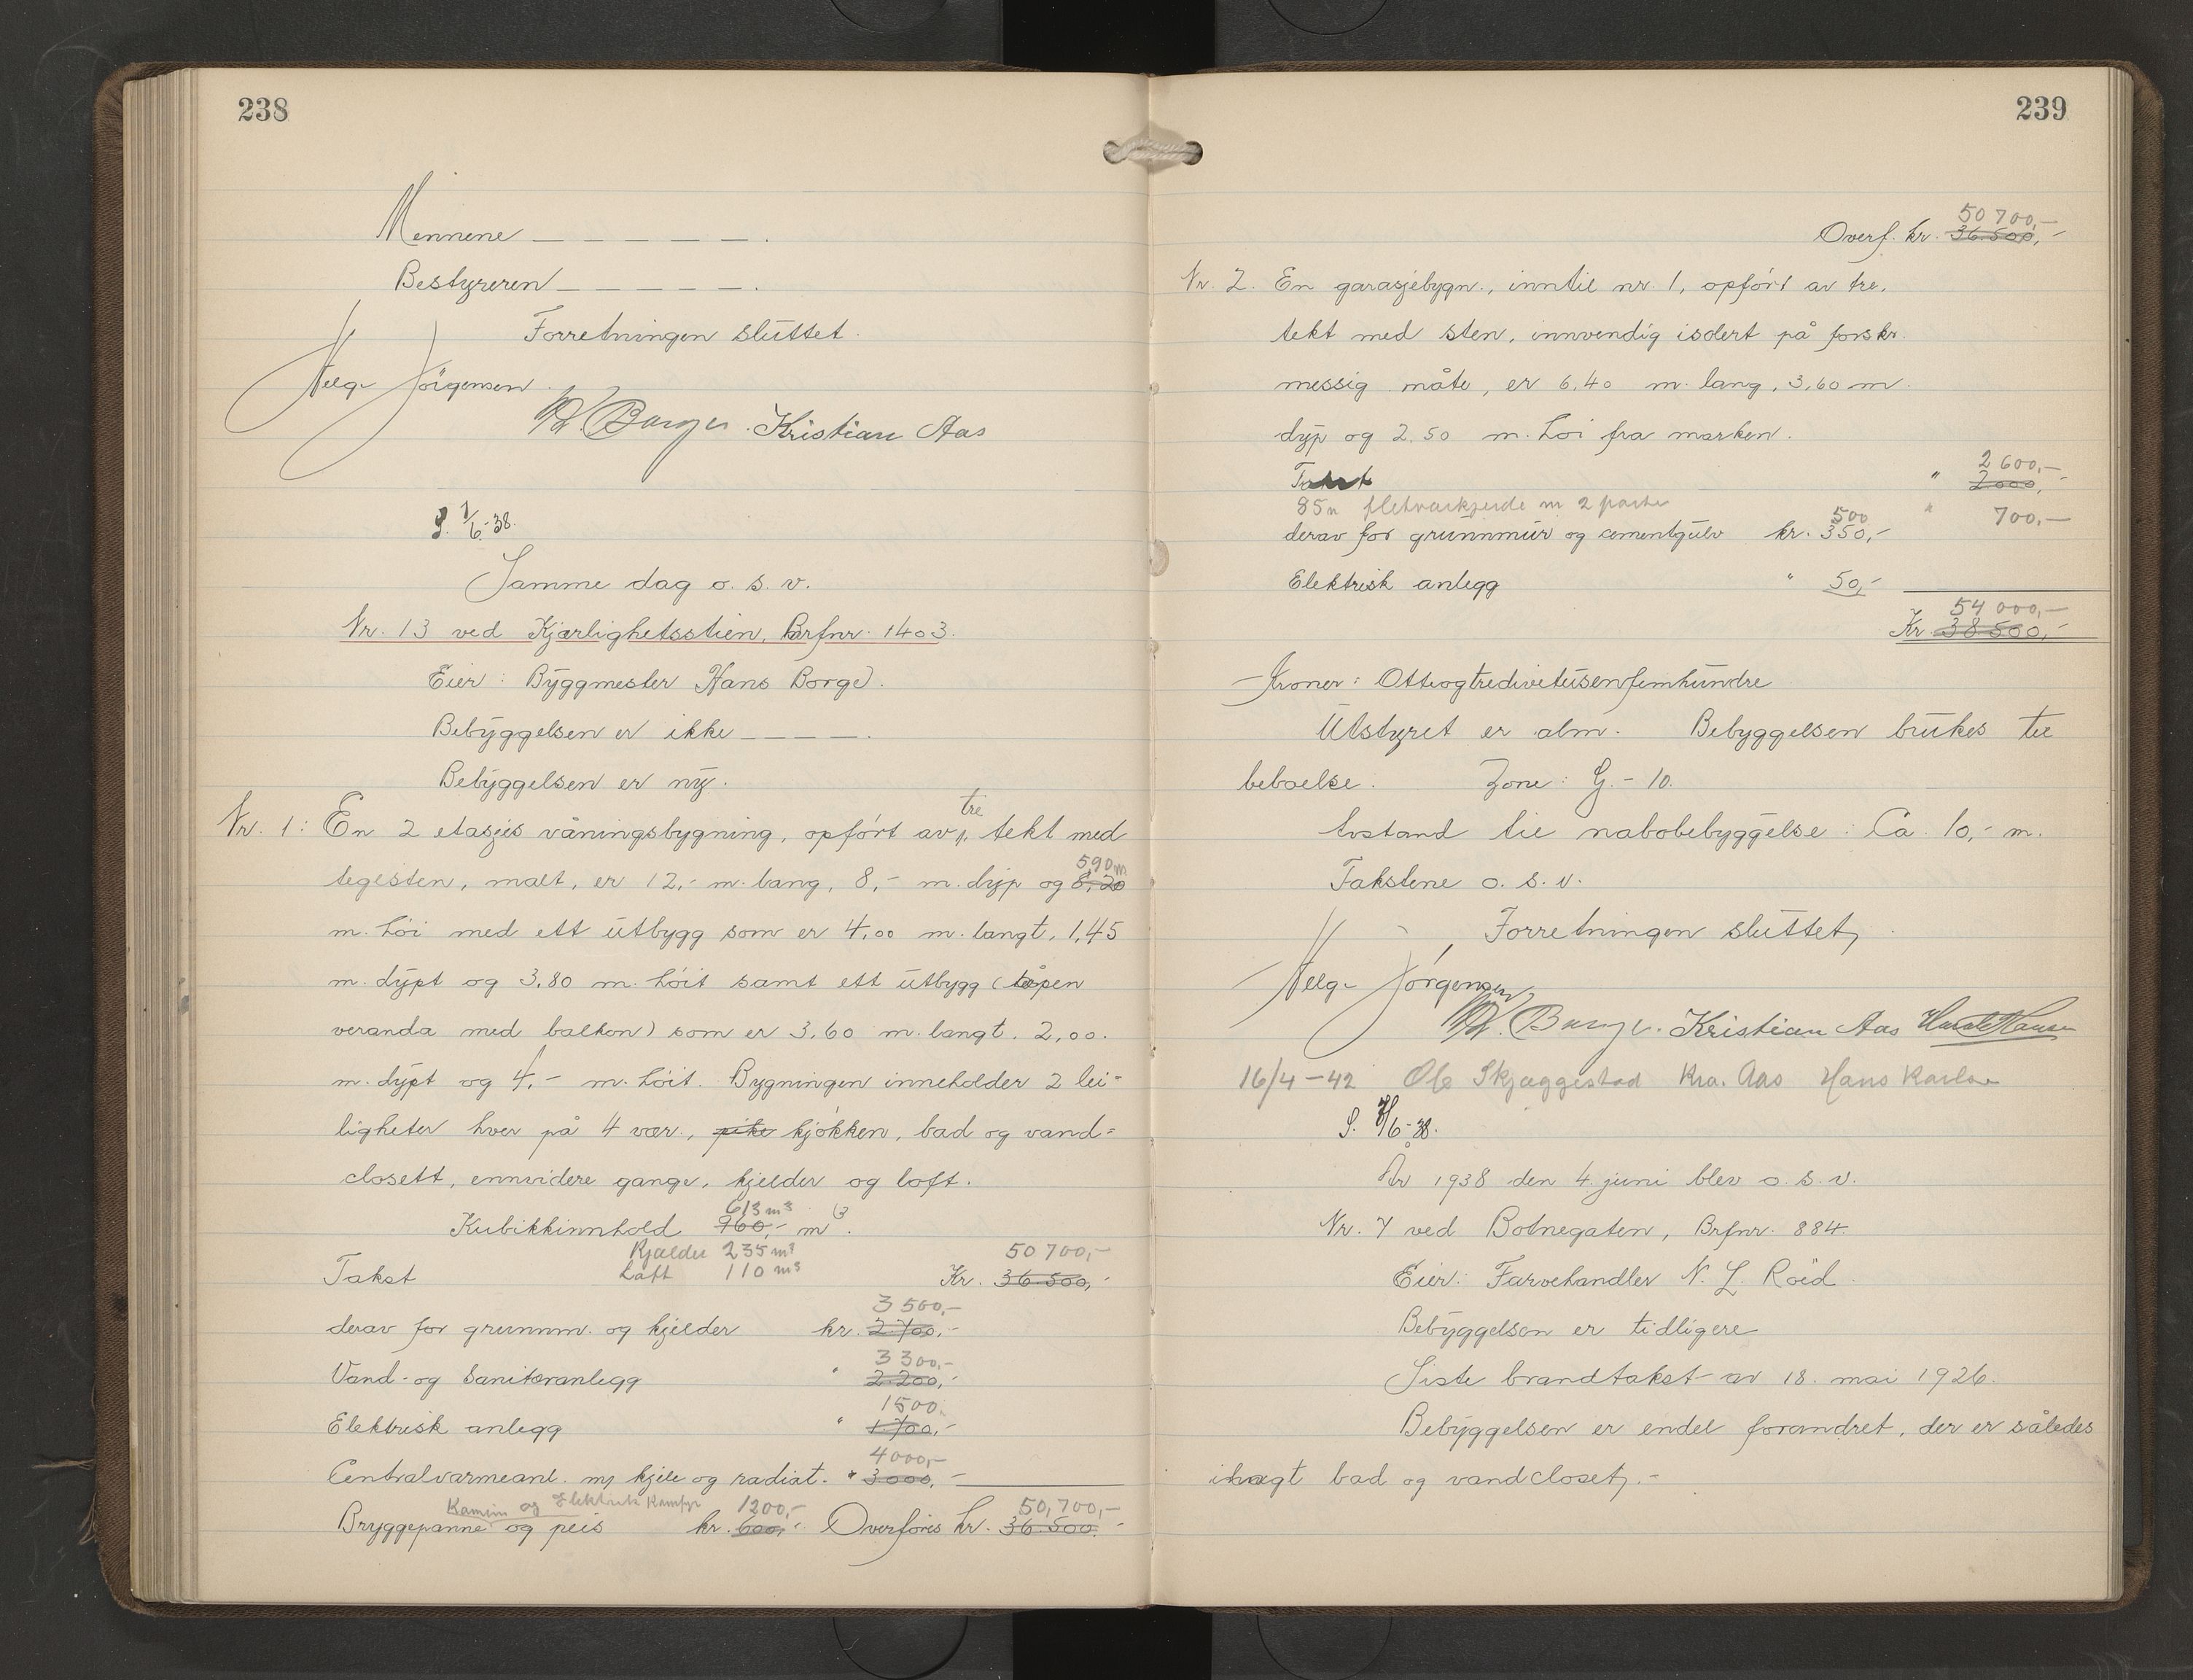 238
Mennene _ _ _ _ _ .
Bestyreren _ _ _ _ _ .
Forretningen sluttet.
Helge Jörgensen.
Kristian Aas
S. 1/6-38.
Samme dag o. s. v.
Nr. 13 ved Kjærlighetsstien, Brfnr. 1403.
Eier: Byggmester Hans Borge.
Bebyggelsen er ikke _ _ _ _ .
Bebyggelsen er ny.
tre
Nr. 1: En 2 etasjes våningsbygning, opført av, tekt med
590 m
teglsten, malt, er 12,- m. lang, 8,- m. dyp og 8,20
m. høi med ett utbygg som er 4,00 m. langt, 1,45
m. dypt og 3,80 m. høit samt ett utbygg (åpen
veranda med balkon) som er 3,60 m. langt. 2,00.
m. dypt og 4,- m. høit. Bygningen inneholder 2 lei-
ligheter hver på 4 vær., pike kjøkken, bad og vand-
closett, ennvidere gange, kjelder og loft.
613 m³
Kubikkinnhold 960,- m³.
Kjælder 235 m³
50 700,-
Loft 110 m³
Takst Kr. 36.500,-
3 500,-
derav for grunnm. og kjelder kr. 2.700,-
3 300,-
Vand- og Sanitæranlegg " 2.200,-
1500,
Elektrisk anlegg " 1.700,-
4000,-
Centralvarmeanl. m/ kjele og radiat. " 3.000,-
Kamin og Elektrisk Komfyr 1200,- 50,700,-
Bryggepanne og peis kr. 600,- Overføres kr. 36.500.-
239
50 700,-
Overf. kr. 36.500,-
Nr. 2. En garasjebygn., inntil nr. 1, opført av tre,
tekt med sten, innvendig isolert på forskr.
messig måte, er 6,40 m. lang, 3,60 m.
dyp og 2,50 m. høi fra marken.
2 600,-
Takst " 2.000,-
85 m 2 " 700,-
500
derav for grunnmur og cementgulv kr. 350,-
Elektrisk anlegg " 50,-
54 000,-
Kr 38.500,-
Kroner: Otteogtredivetusenfemhundre
Utstyret er alm. Bebyggelsen brukes til
beboelse. Zone: G.-10.
Avstand til nabobebyggelse: Ca. 10,- m.
Takstene o. s. v.
Forretningen sluttet,
Helge Jörgensen
Kristian Aas Harald Hansen
16/4-42 Ole Skjæggestad Kra. Aas Hans Karlsen
År 1938 den 4. juni blev o. s. v.
Nr. 7 ved Botnegaten, Brfnr. 884.
Eier: Farvehandler N. L. Röed.
Bebyggelsen er tidligere
Siste brandtakst av 18. mai 1926.
Bebyggelsen er endel forandret, der er således
ilagt bad og vandcloset,.-